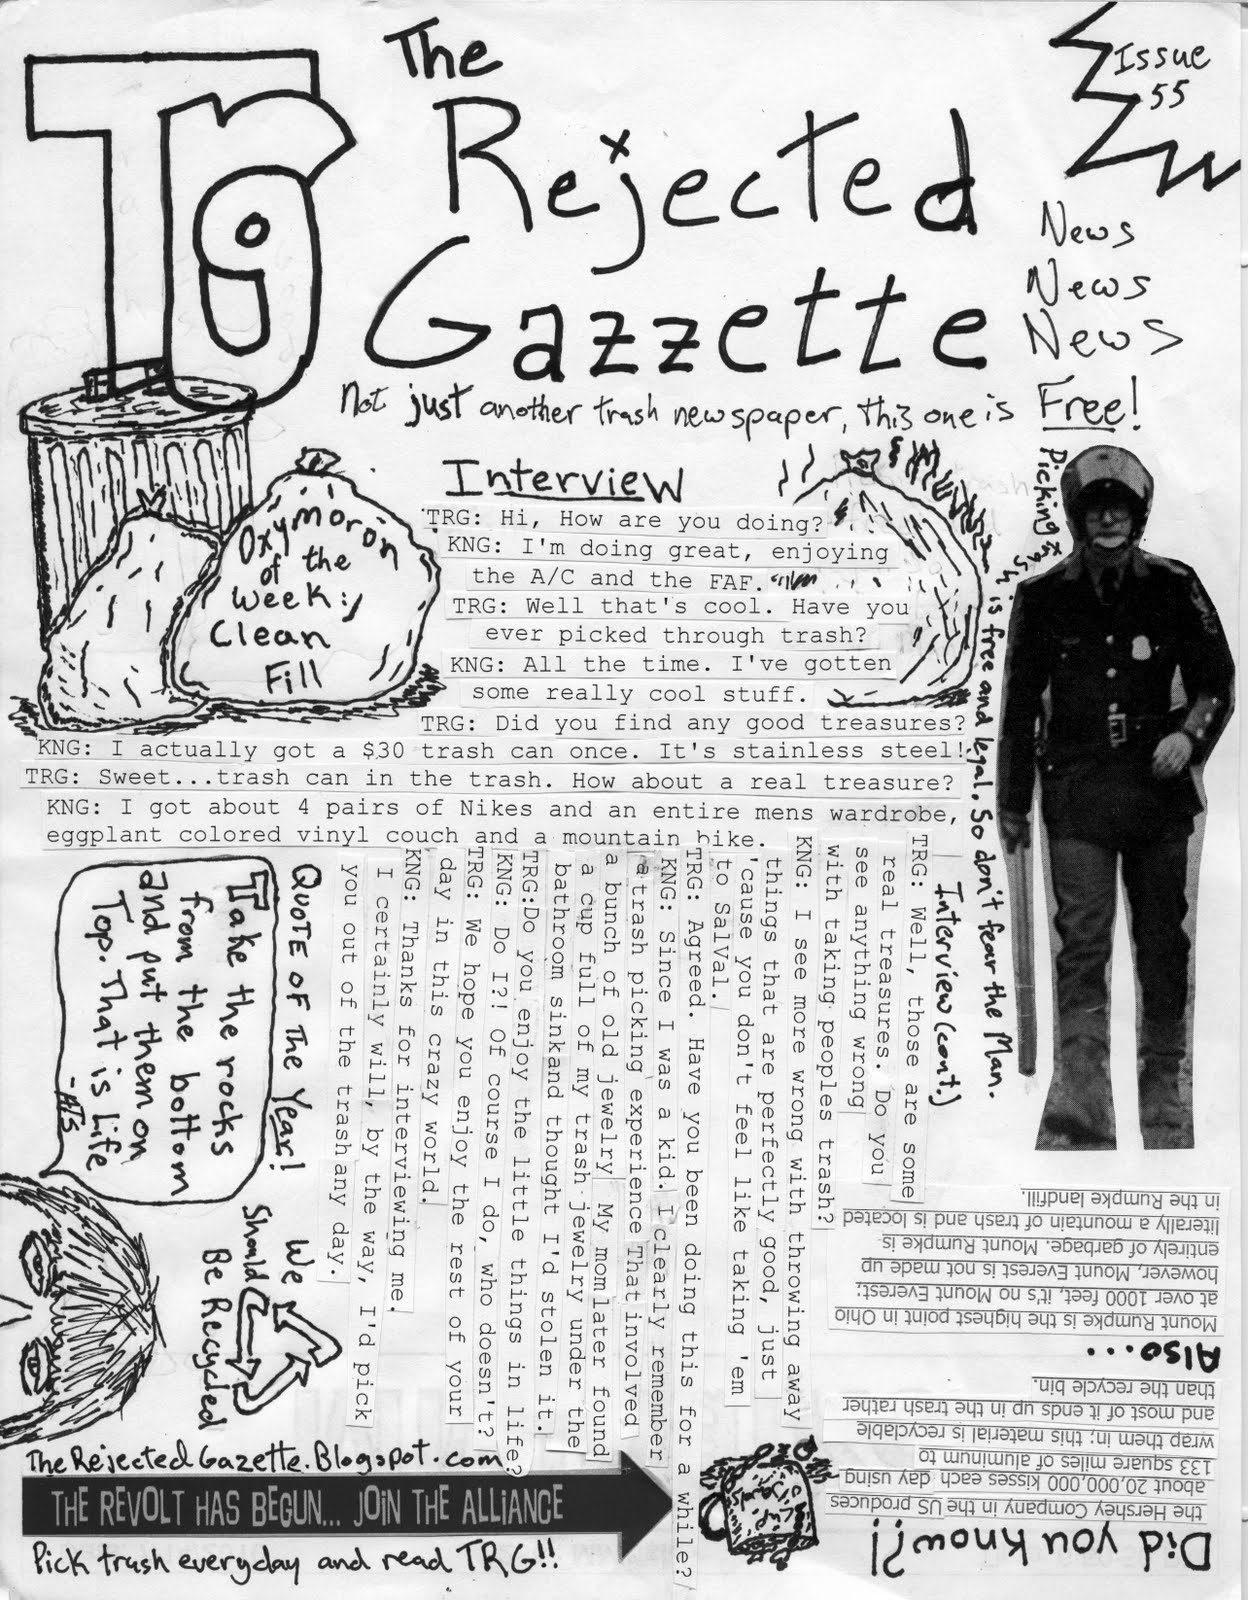 TRG
The
Rejected
Gazzette
Issue
55
News
News
News
Not just another trash newspaper, this one is Free!
Oxymoron
of the
week:
Clean
Fill
Interview
TRG: Hi, How are you doing?
KNG: I'm doing great, enjoying
the A/C and the FAF.
TRG: Well that's cool. Have you
ever picked through trash?
KNG: All the time. I've gotten
some really cool stuff.
TRG: Did you find any good treasures?
KNG: I actually got a $30 trash can once. It's stainless steel!
TRG: Sweet...trash can in the trash. How about a real treasure?
KNG: I got about 4 pairs of Nikes and an entire mens wardrobe,
eggplant colored vinyl couch and a mountain bike.
Picking trash is free and legal. So don't fear the Man.
Interview (cont.)
TRG: Well, those are some
real treasures. Do you
see anything wrong
with taking peoples trash?
KNG: I see more wrong with throwing away
things that are perfectly good, just
'cause you don't feel like taking 'em
to SalVal.
TRG: Agreed. Have you been doing this for a while?
KNG: Since I was a kid. I clearly remember
a trash picking experience That involved
a bunch of old jewelry. My mom later found
a cup full of my trash jewelry under the
bathroom sink and thought I'd stolen it.
TRG: Do you enjoy the little things in life?
KNG: Do I?! Of course I do, who doesn't?
TRG: We hope you enjoy the rest of your
day in this crazy world.
KNG: Thanks for interviewing me.
I certainly will, by the way, I'd pick
you out of the trash any day.
Quote of the Year!
Take the rocks
from the bottom
and put them on
Top. That is Life
We
Should
Be Recycled
Did you know?!
the Hershey Company in the US produces
about 20,000,000 kisses each day using
133 square miles of aluminum to
wrap them in; this material is recyclable
and most of it ends up in the trash rather
than the recycle bin.
Also...
Mount Rumpke is the highest point in Ohio
at over 1000 feet, it's no Mount Everest;
however, Mount Everest is not made up
entirely of garbage. Mount Rumpke is
literally a mountain of trash and is located
in the Rumpke landfill.
TheRejectedGazette.Blogspot.com
THE REVOLT HAS BEGUN... JOIN THE ALLIANCE
Pick trash everyday and read TRG!!